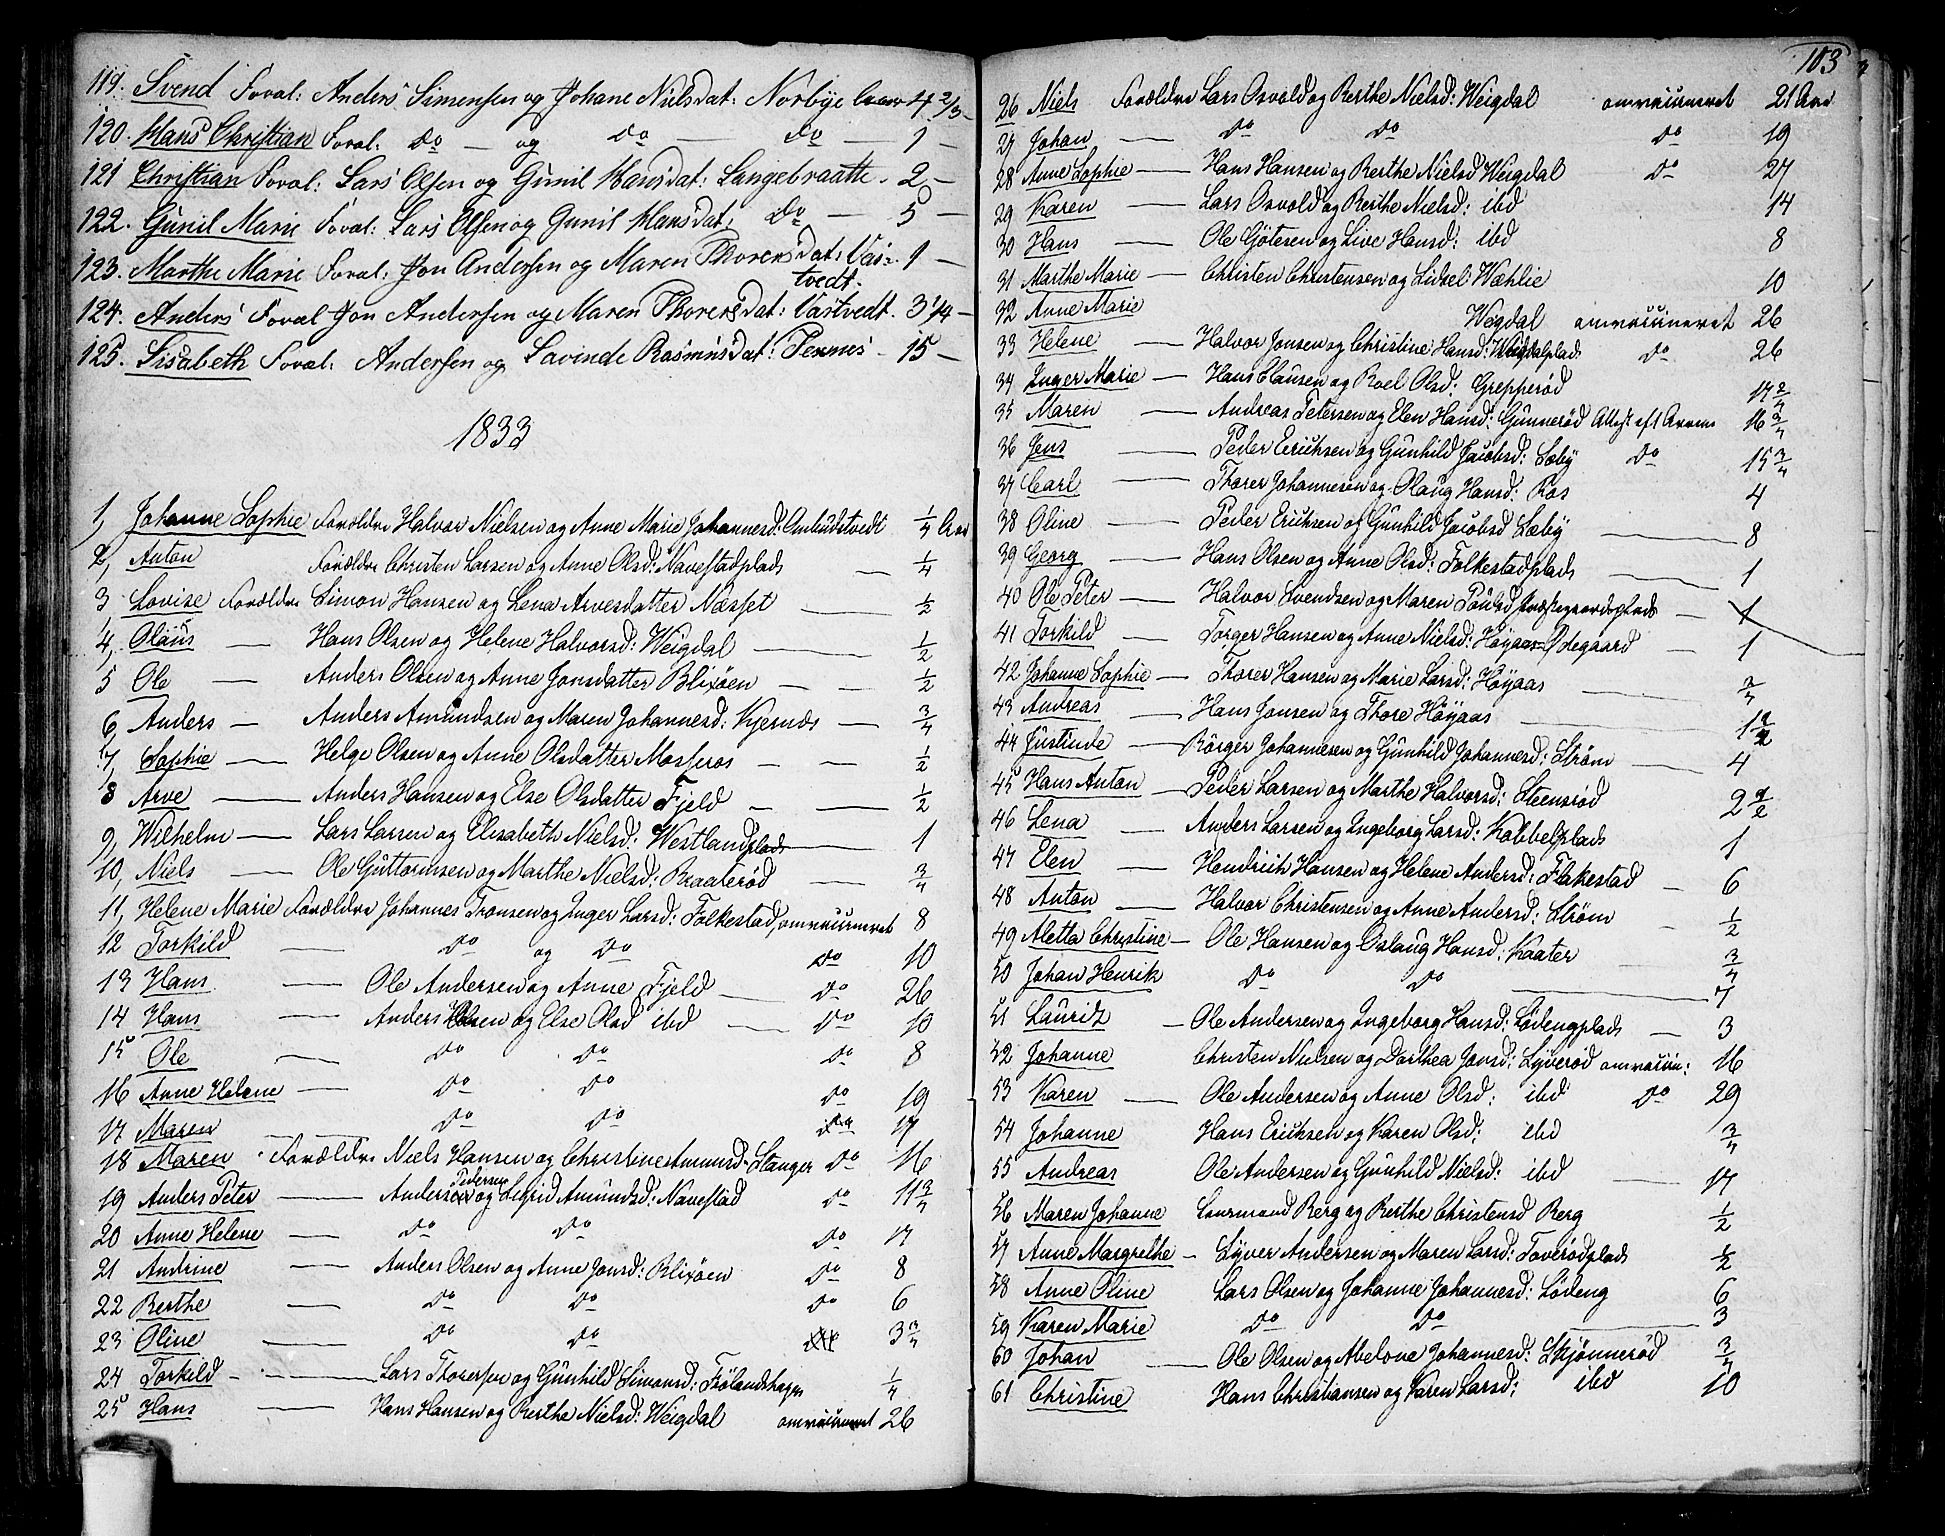 119. Svend Foræl: Anders Simensen og Johane Nielsdat: Norbye 4 2/3 –
120. Hans Christian Foræl: Do — og Do — Do — 1 –
121 Christian Foræl: Lars Olsen og Gunil Hansdat: Langebraatte – 2 –
122. Gunil Marie Foræl: Lars Olsen og Gunil Hansdat: Do — 5 –
123. Marthe Marie Foræl: Jon Andersen og Maren Thorersdat: Vas- 1 –
tvedt.
124. Anders Foræl Jon Andersen og Maren Thorersdat: Vastvedt. 3 1/4 –
125. Lisabeth Foræl: Andersen og Lavinde Rasmusdat: Tennes – 15 –
1833
1, Johanne Sophie Forældre Halvor Nielsen og Anne Marie Johannesd: Ambudstvedt 1/4 Aar
2, Anton Forældre Christen Larsen og Anne Olsd: Navestadplads — 1/4
3 Lovise Forældre Simon Hansen og Lena Arvesdatter Næsset — 1/2
4, Olaus — Hans Olsen og Helene Halvorsd: Weigdal — 1/2
5 Ole — Anders Olsen og Anne Jonsdatter Blixøen — 1/2
6, Anders — Anders Amundsen og Maren Johannesd: Kjernæs — 3/4
7, Sophie — Helge Olsen og Anne Olsdatter Mosseros — 1/2
8 Arve — Anders Hansen og Else Olsdatter Fjeld — 1/2
9, Wilhelm — Lars Larsen og Elisabeth Nielsd: Westlandplads — 1
10, Niels — Ole Guttormsen og Marthe Nielsd: Braaterød — 3/4
11, Helene Marie Forældre Johannes Tronsen og Inger Larsd: Folkestad, omvaccineret 8
12 Torkild — Do og Do Do 10
13 Hans — Ole Andersen og Anne Fjeld — Do 26
14 Hans — Anders Olsen og Else Olsd ibd — Do 10
15 Ole — Do Do Do 8
16 Anne Helene — Do Do Do 19
17 Maren — Do Do 17
18 Maren Forældre Niels Hansen og Christine Amunsd: Stanger Do 16
Pedersen
19 Anders Peter — Anders og Sigrid Amundsd: Navestad Do 11 3/4
20 Anne Helene — Do Do Do 17
21 Andrine — Anders Olsen og Anne Jonsd: Blixøen Do 8
22 Berthe — Do Do Do 6
23 Oline — Do Do 3 3/4
24 Torkild — Lars Thorersen og Gunhild Simonsd: Frølandshagen 1/4
25 Hans — Hans Hansen og Berthe Nielsd: Weigdal omvaccineret 26
103
26 Niels Forældre Lars Osvold og Berthe Nielsd: Weigdal omvaccineret 21 Aar
27 Johan — Do Do Do 19
28 Anne Sophie — Hans Hansen og Berthe Nielsd Weigdal Do 27
29 Karen — Lars Osvold og Berthe Nielsd: ibd 14
30 Hans — Ole Götesen og Live Hansd: ibd 8
31 Marthe Marie — Christen Christensen og Lidsel Wæhlie 10
32 Anne Marie Weigdal omvaccineret 26
33 Helene — Halvor Jonsen og Christine Hansd: Weigdalplads Do 26
34 Inger Marie — Hans Clausen og Roel Olsd: Grepperød
35 Maren — Andreas Petersen og Elen Hansd: Gunnerød 16 3/4
36 Jens — Peder Ericksen og Gunhild Jacobsd: Sæby Do 15 3/4
37 Carl — Thorer Johannesen og Olaug Hansd: Ros 4
38 Oline — Peder Ericksen og Gunhild Jacobsd Sæby — 8
39 Georg — Hans Olsen og Anne Olsd: Folkestadplads — 1
40 Ole Peter — Halvor Svendsen og Maren Poulsd Præstegaardsplads — 1
41 Torkild — Torger Hansen og Anne Nielsd: Høyaas Ødegaard — 1
42 Johanne Sophie — Thorer Hansen og Marie Larsd: Høyaas — 3/4
43 Andreas — Hans Jonsen og Thore Høyaas — 1 1/2
44 Justinde — Börger Johannesen og Gunhild Johannesd: Strøm — 4
45 Hans Anton — Peder Larsen og Marthe Halvorsd: Steensrød 2 1/2
46 Lena — Anders Larsen og Ingeborg Larsd: Kabbelplads 1
47 Elen — Hendrich Hansen og Helene Andersd: Flakestad — 6
48 Anton — Halvor Christensen og Anne Andersd: Strøm — 1/2
49 Aletta Christine — Ole Hansen og Oslaug Hansd: Kaater — 3/4
50 Johan Henrik Do Do — 7
51 Lauritz — Ole Andersen og Ingeborg Hansd: Lødengplads — 3
52 Johanne Christen Nielsen og Dorthea Jonsd: Syverød omvaccin: 16
53 Karen — Ole Andersen og Anne Olsd: ibd Do 29
54 Johanne Hans Ericksen og Karen Olsd: ibd 3/4
55 Andreas Ole Andersen og Gunhild Nielsd: ibd — 17
56 Maren Johanne Berg og Berthe Christensd Berg 1/2
57 Anne Margrethe — Syver Andersen og Maren Larsd: Toverødplads 1/2
58 Anne Oline Lars Olsen og Johanne Johannesd: Lødeng 6
59 Karen Marie Do Do — 3
60 Johan — Ole Olsen og Abelone Johannesd: Skjønnerød 3/4
61 Christine Hans Christiansen og Karen Larsd: ibd 10